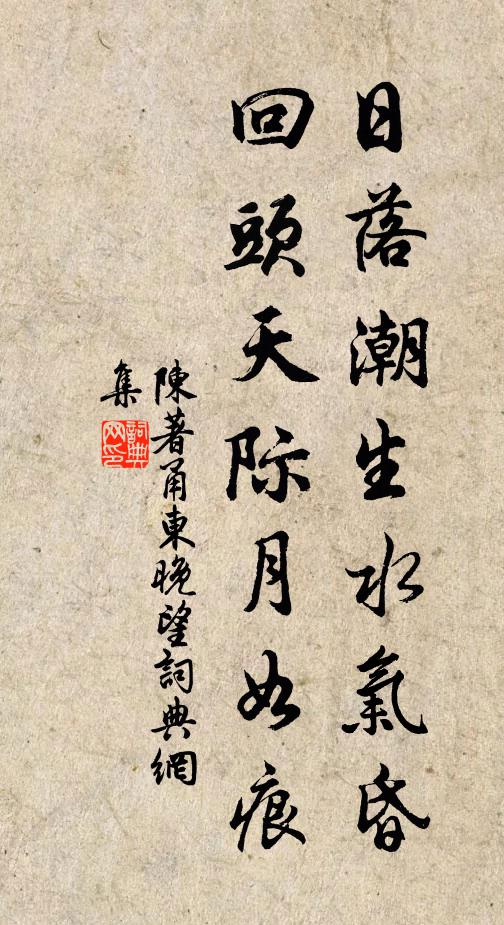 日落潮生水氣昏
回頭天际月如痕
陳著甬東晚望詞典網
集
詞典
网印